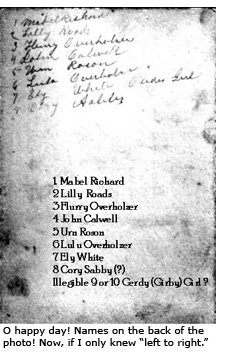 1 Mabel Richard
2 Lilly Roads
3 Flurry Overholzer
4 John Calwell
5 Urn Roson
6 Lula Overholser
7 Ely White Girl
Cory Sabby
1 Mabel Richard
2 Lilly Roads
3 Flurry Overholzer
4 John Calwell
5 Urn Roson
6 Lulu Overholzer
7 Ely White
8 Cory Sabby (?)
Illegible 9 or 10 Gerdy (Girby) Girl ?
O happy day! Names on the back of the
photo! Now, if I only knew “left to right.”